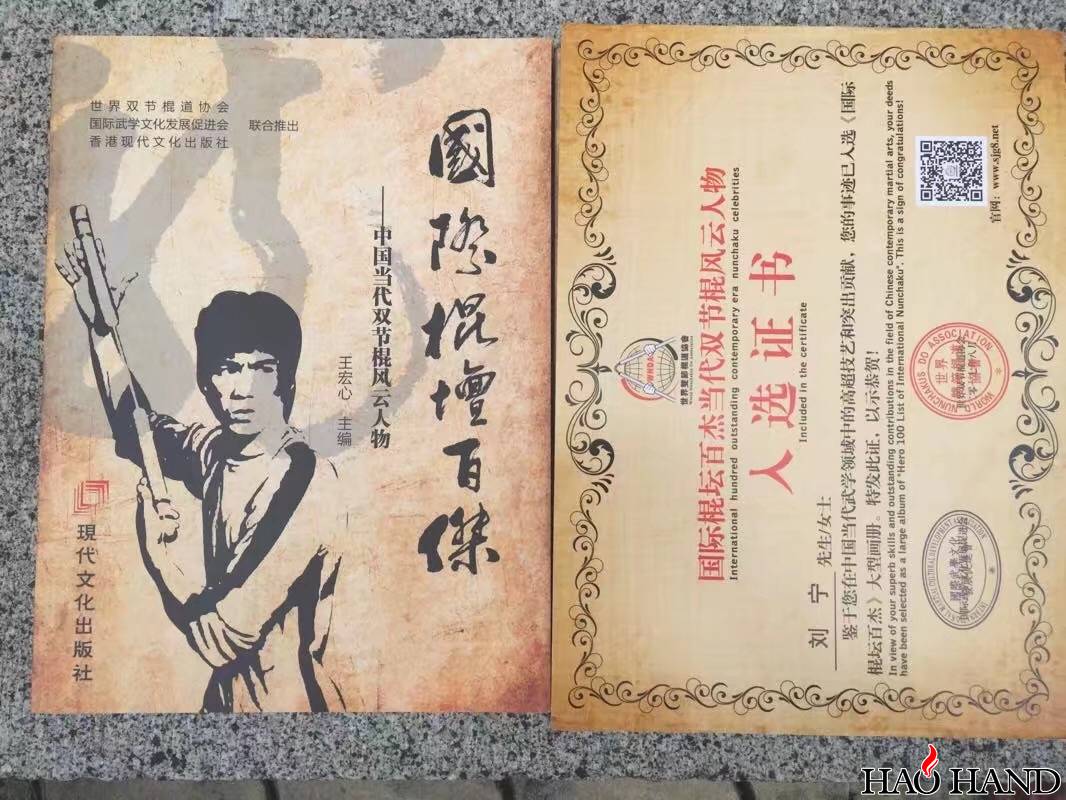 世界双节棍道协会
国际武学文化发展促进会
香港现代文化出版社
联合推出
國際棍壇百傑
——中国当代双节棍风云人物
王宏心 主编
現代文化出版社
WNDA
世界雙節棍道協會
国际棍坛百杰当代双节棍风云人物
International hundred outstanding contemporary era nunchaku celebrities
入选证书
Included in the certificate
刘宁 先生/女士
鉴于您在中国当代武学领域中的高超技艺和突出贡献，您的事迹已入选《国际
棍坛百杰》大型画册。特发此证，以示恭贺！
In view of your superb skills and outstanding contributions in the field of Chinese contemporary martial arts, your deeds
have been selected as a large album of "Hero 100 List of International Nunchaku". This is a sign of congratulations!
WORLD NUNCHAKUS DO ASSOCIATION
官网：www.sjg8.net
HAO HAND